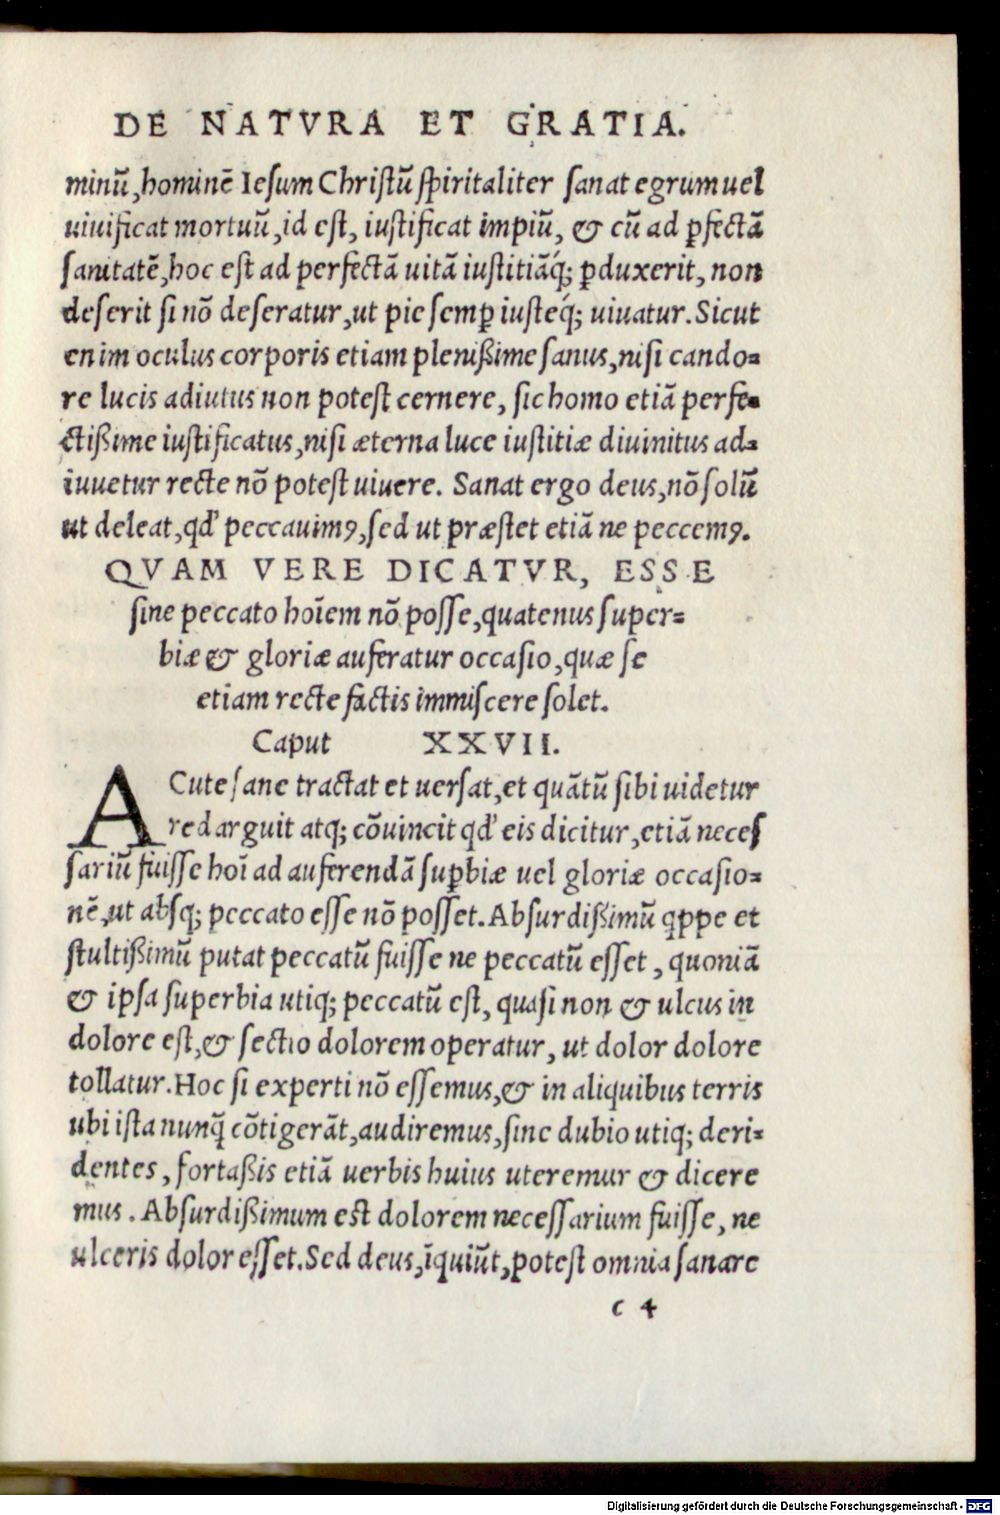 DE NATVRA ET GRATIA.
minū, hominē Iesum Christū spiritaliter sanat egrum uel
uiuificat mortuū, id est, iustificat impiū, & cū ad ꝑfectā
sanitatē, hoc est ad perfectā uitā iustitiāq́; ꝑduxerit, non
deserit si nō deseratur, ut pie semꝑ iusteq́; uiuatur. Sicut
enim oculus corporis etiam plenißime sanus, nisi cando=
re lucis adiutus non potest cernere, sic homo etiā perfe=
ctißime iustificatus, nisi æterna luce iustitiæ diuinitus ad=
iuuetur recte nō potest uiuere. Sanat ergo deus, nō solū
ut deleat, qd' peccauimꝰ, sed ut præstet etiā ne peccemꝰ.
QVAM VERE DICATVR, ESSE
sine peccato hoīem nō posse, quatenus super=
biæ & gloriæ auferatur occasio, quæ se
etiam recte factis immiscere solet.
Caput XXVII.
ACute sane tractat et uersat, et quātū sibi uidetur
redarguit atq; cōuincit qd' eis dicitur, etiā neces
sariū fuisse hoī ad auferendā suꝑbiæ uel gloriæ occasio=
nē, ut absq; peccato esse nō posset. Absurdißimū qppe et
stultißimū putat peccatū fuisse ne peccatū esset, quoniā
& ipsa superbia utiq; peccatū est, quasi non & ulcus in
dolore est, & sectio dolorem operatur, ut dolor dolore
tollatur. Hoc si experti nō essemus, & in aliquibus terris
ubi ista nunq̄ cōtigerāt, audiremus, sine dubio utiq; deri=
dentes, fortaßis etiā uerbis huius uteremur & dicere
mus. Absurdißimum est dolorem necessarium fuisse, ne
ulceris dolor esset. Sed deus, īquiūt, potest omnia sanare
c 4
Digitalisierung gefördert durch die Deutsche Forschungsgemeinschaft - DFG